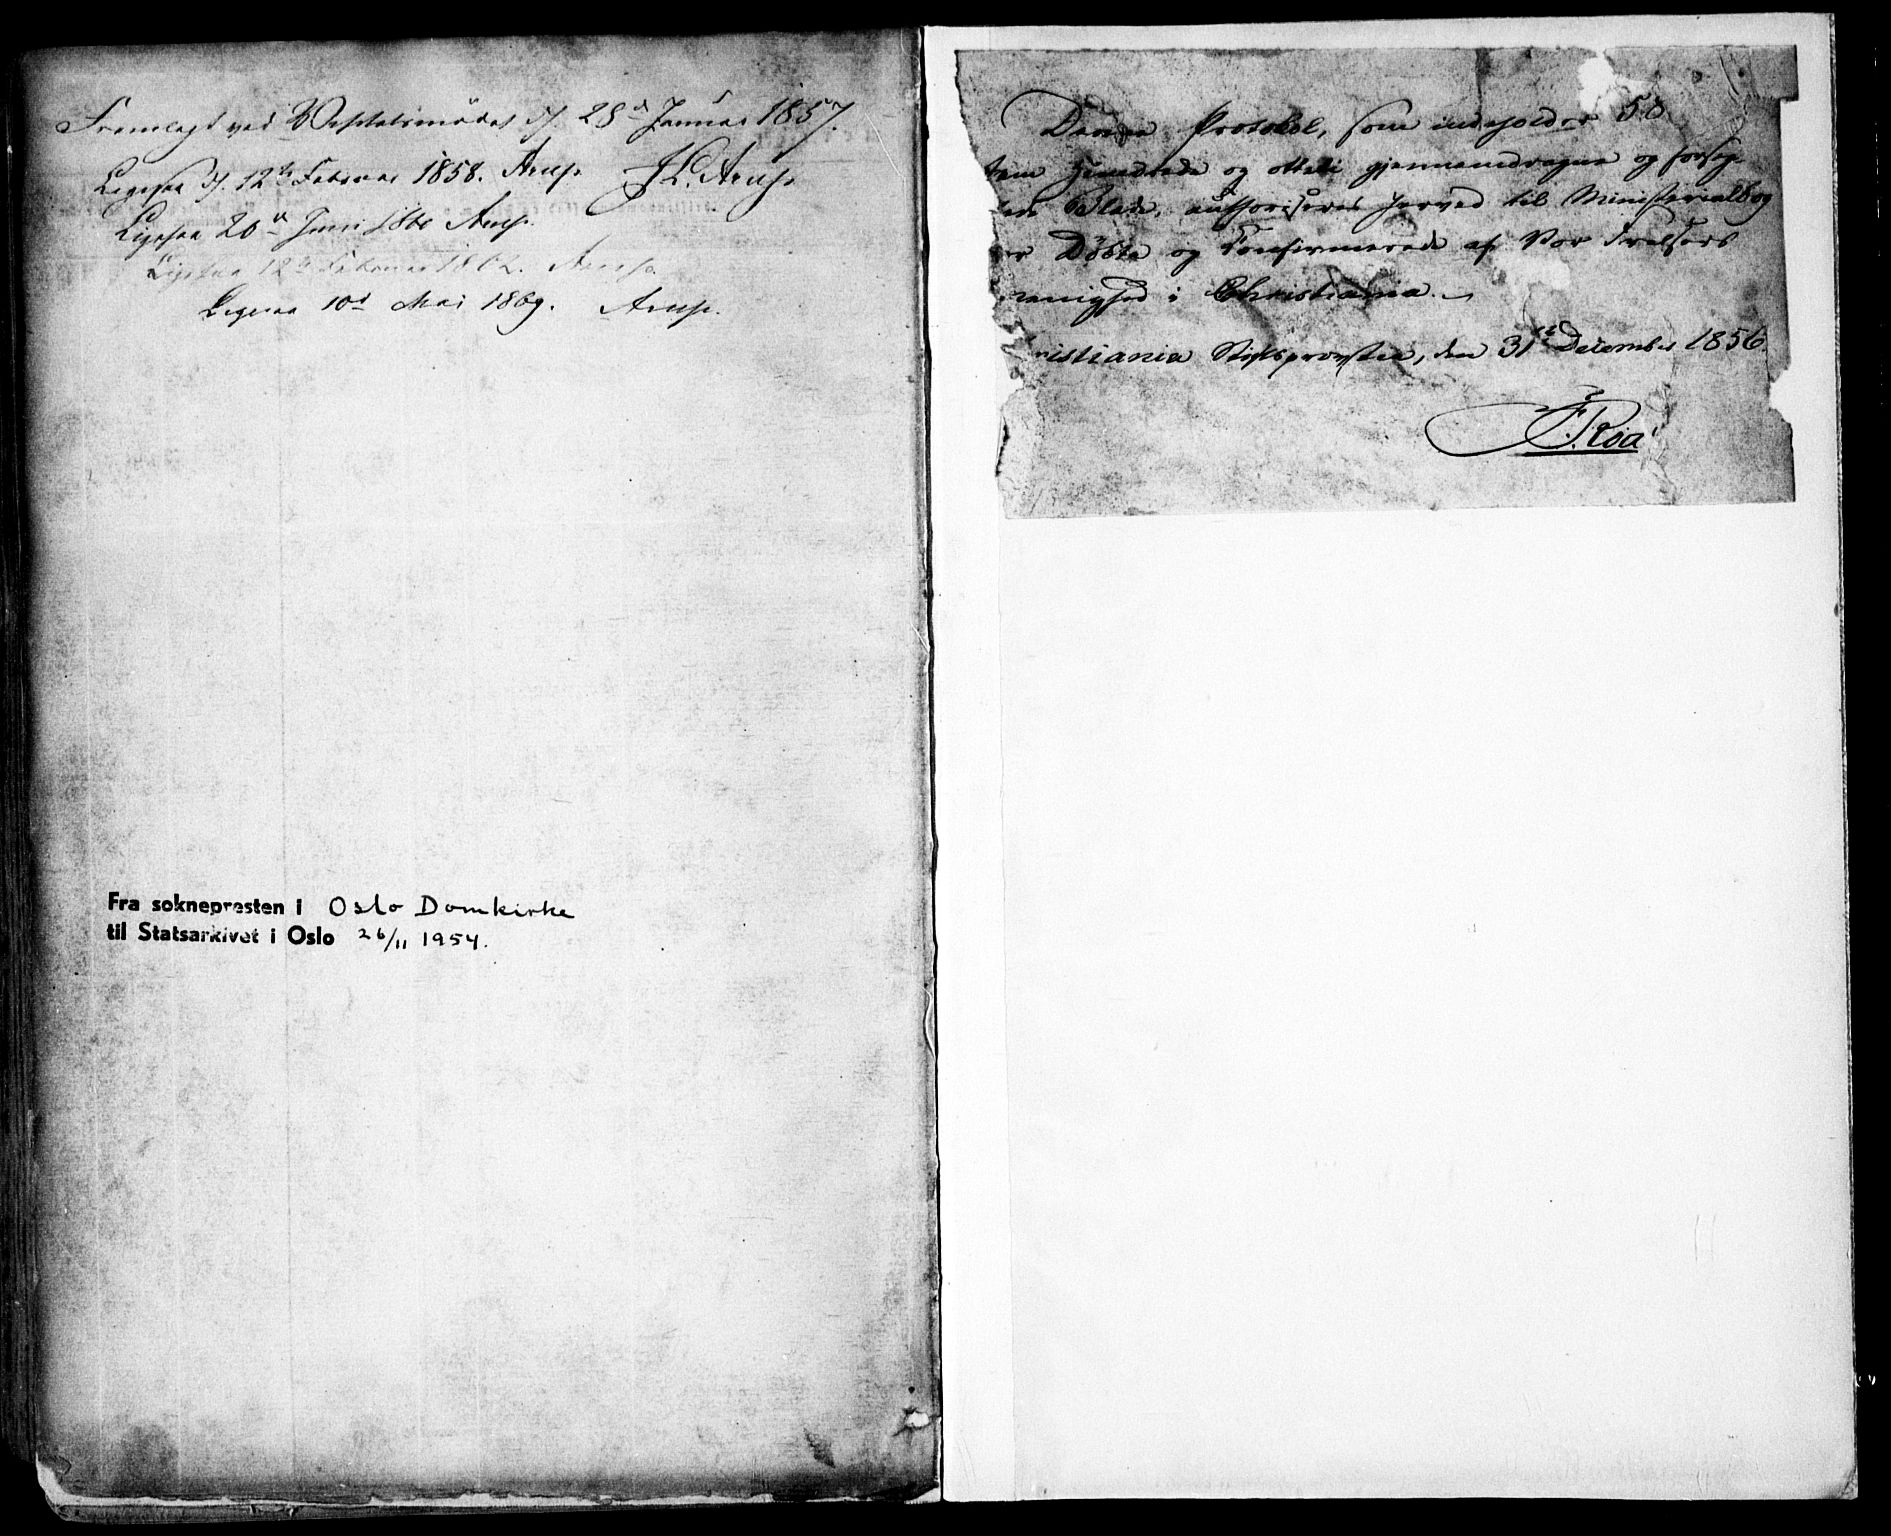 Fremlagt ved Visitatsmödet d/. 28de Januar 1857.
J L. Arup.
Ligesaa d/. 12te Februar 1858. Arup.
Ligesaa 20de Juni 1860 Arup.
Ligesaa 12te Februar 1862. Arup.
Ligesaa 10de Mai 1869. Arup.
Fra soknepresten i Oslo Domkirke
til Statsarkivet i Oslo 26/11 1954.
Denne Protokol, som indeholder 58
fem Hundrede og otteti gjennemdragne og forseg-
Blade, authoriseres herved til Ministerialbog
Döbte og Confirmerede af Vor Frelsers
menighed i Christiania.
ristiania Stiftsprovstie, den 31te December 1856.